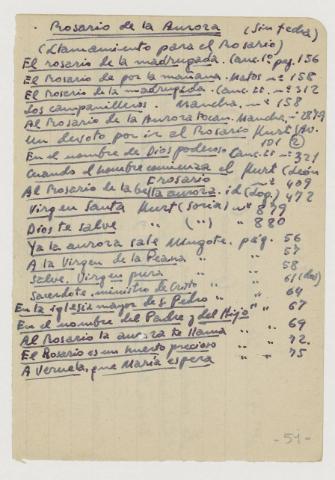 . Rosario de la Aurora (Sin fecha)
(Llamamiento para el Rosario)
El rosario de la madrugada. Canc.º pag. 156
El Rosario de por la mañana. Matos - nº 158
El Rosario de la madrugada. Canc. - nº 312
Los campanilleros. Mancha. nº 158
Al Rosario de la Aurora tocan. Mancha,
Un devoto por ir al Rosario Kurt (Av.
101 (2)
En el nombre de Dios poderoso Canc. nº 321
Cuando el hombre comienza el Kurt (León
Erosario nº 409
Al Rosario de la bella aurora. id (Log.) 472
Virgen Santa Kurt (Soria) nº 879
Dios te salve " (") " 880
Ya la aurora sale Mingote. pág. 56
A la Virgen de la Peana " " 57
Salve, Virgen pura " " 58
Sacerdote, ministro de Cristo " " 61 (dos)
En la iglesia mayor de S. Pedro " " 64
En el nombre del Padre y del Hijo " " 67
Al Rosario la aurora te llama " " 69
El Rosario es un huerto precioso " " 72.
A Veruela, que María espera " " 75
- 51 -